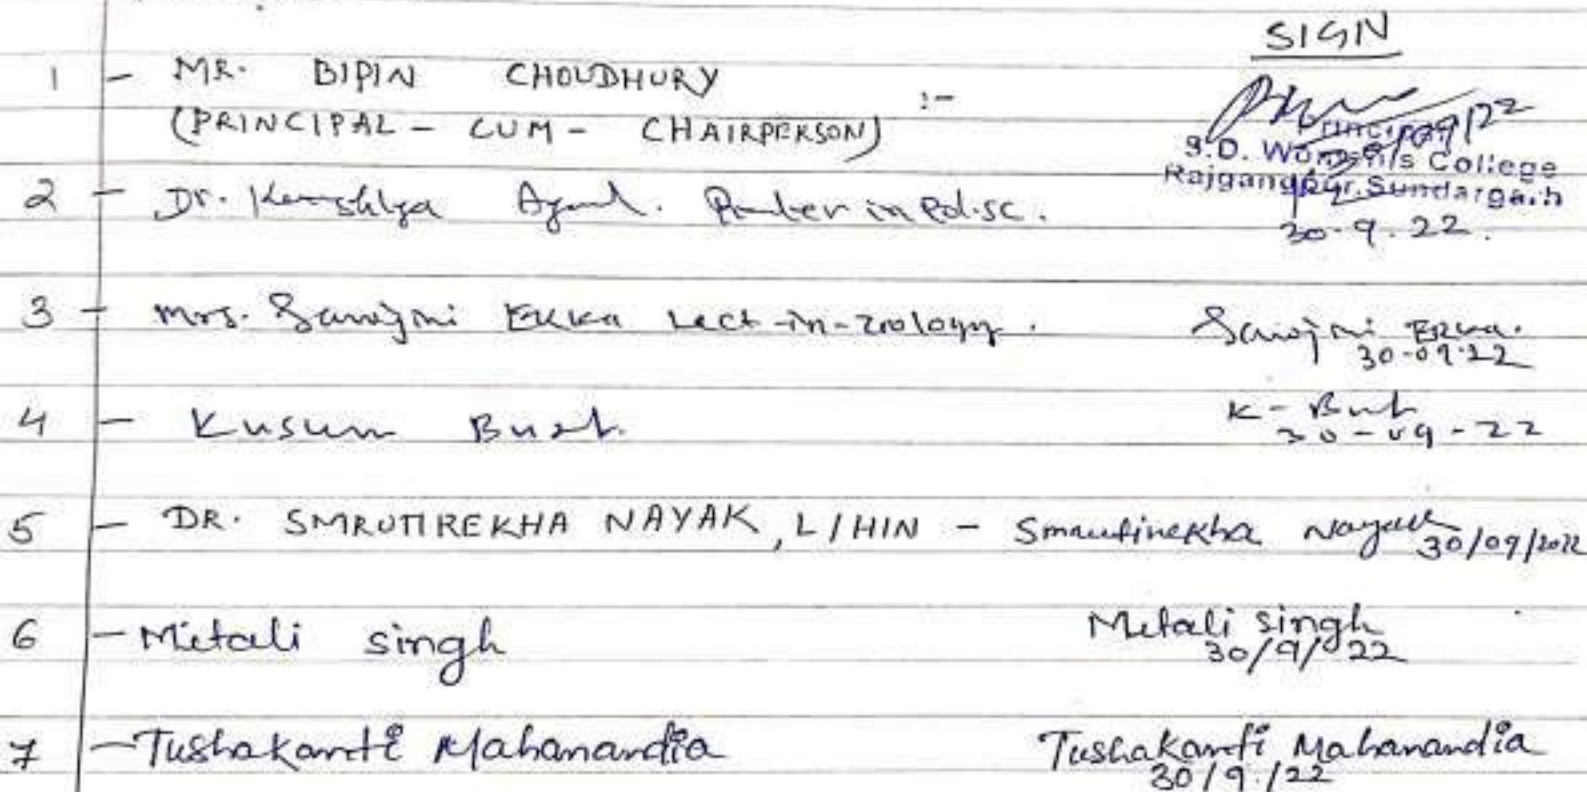 SIGN
1 - MR. BIPIN CHOUDHURY
(PRINCIPAL - CUM - CHAIRPERSON) :-
Principal
S.D. Women's College
Rajgangpur, Sundargarh
2 - Dr. in Pol.sc. 30.9.22.
3 - Mrs. Sarojni Ekka Lect-in-zoology. Sarojni Ekka.
30-09-22
4 - Kusum K-
30-09-22
5 - DR. SMRUTIREKHA NAYAK, L/HIN - Smrutirekha Nayak
30/09/2022
6 - Mitali singh Mitali singh
30/9/22
7 - Tushakanti Mahanandia Tushakanti Mahanandia
30/9/22